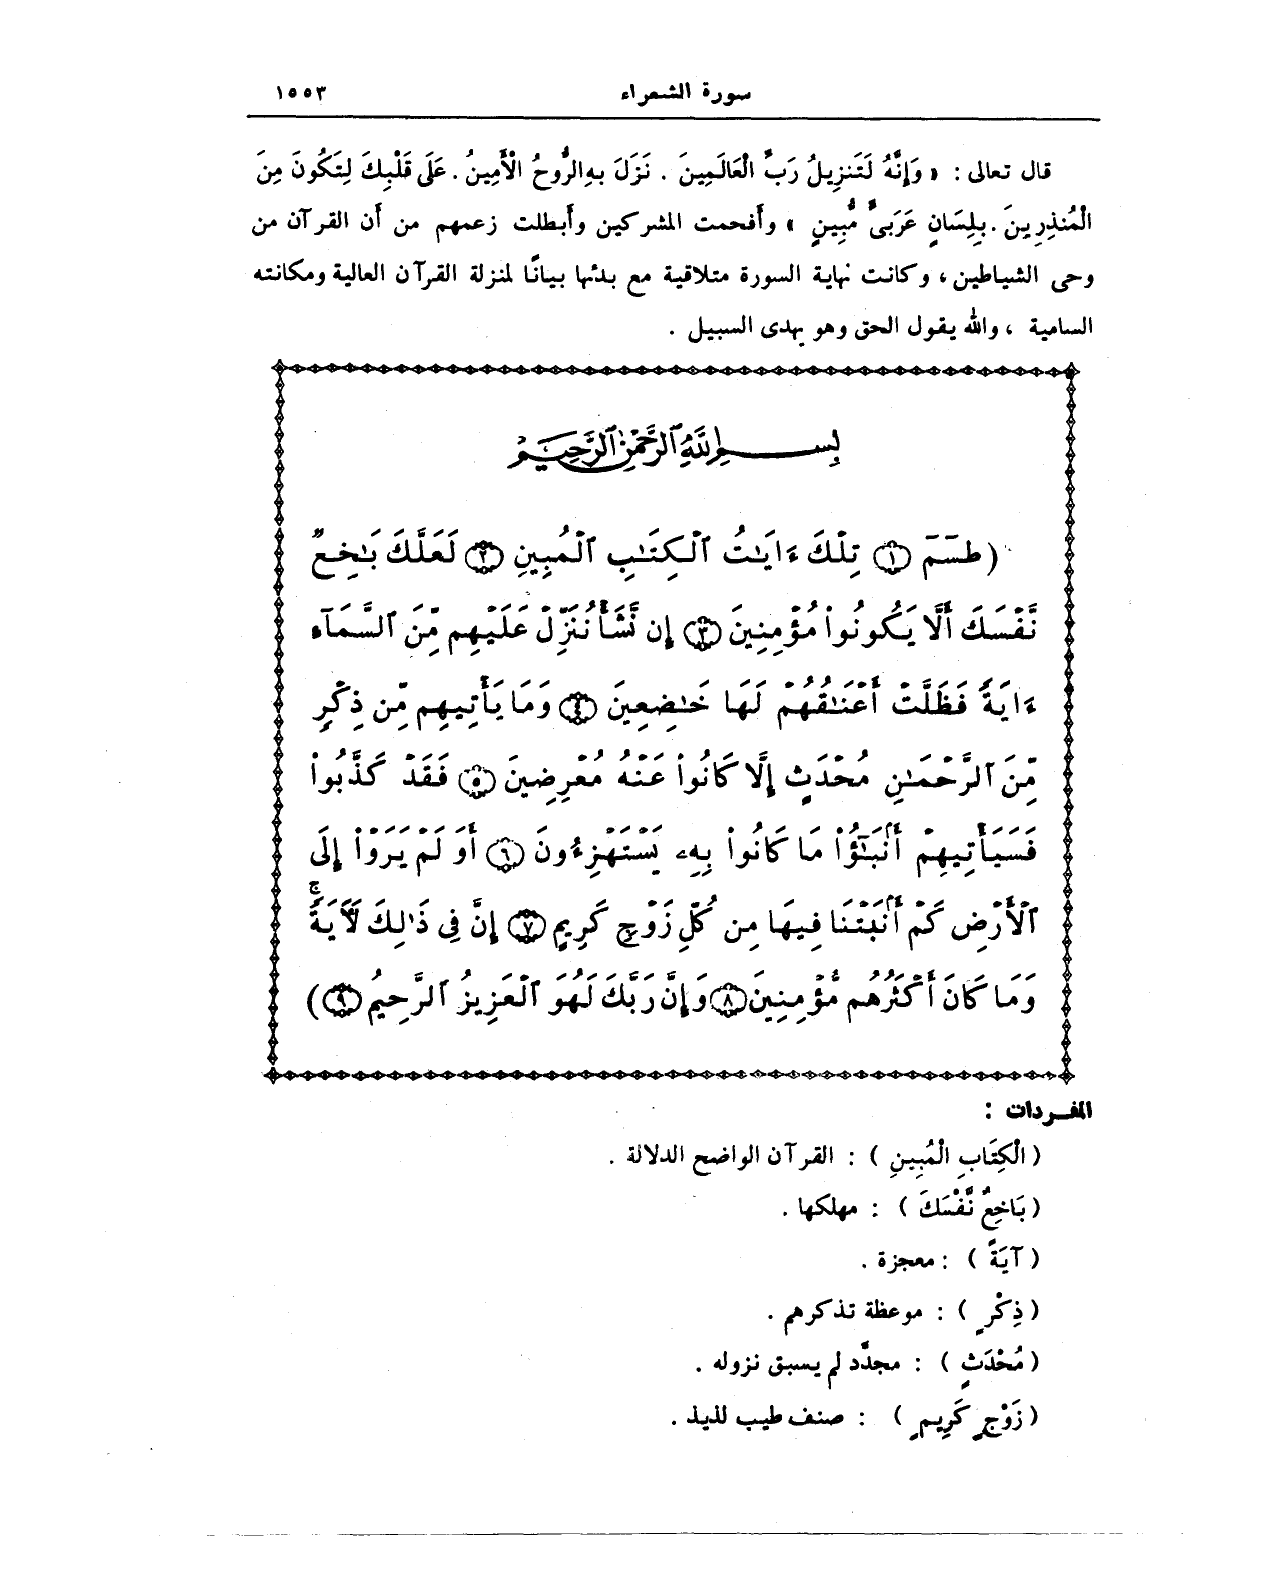 سورة الشعراء ١٥٥٣
قال تعالى : « وَإِنَّهُ لَتَنزِيلُ رَبِّ الْعَالَمِينَ . نَزَلَ بِهِ الرُّوحُ الْأَمِينُ . عَلَى قَلْبِكَ لِتَكُونَ مِنَ
الْمُنذِرِينَ . بِلِسَانٍ عَرَبِىٍّ مُّبِينٍ » وأفحمت المشركين وأبطلت زعمهم من أن القرآن من
وحى الشياطين ، وكانت نهاية السورة متلاقية مع بدئها بيانًا لمنزلة القرآن العالية ومكانته
السامية ، والله يقول الحق وهو يهدى السبيل .
بِسْمِ اللَّهِ الرَّحْمَٰنِ الرَّحِيمِ
(طسٓمٓ ١ تِلْكَ ءَايَٰتُ ٱلْكِتَٰبِ ٱلْمُبِينِ ٢ لَعَلَّكَ بَٰخِعٌ
نَّفْسَكَ أَلَّا يَكُونُوا۟ مُؤْمِنِينَ ٣ إِن نَّشَأْ نُنَزِّلْ عَلَيْهِم مِّنَ ٱلسَّمَآءِ
ءَايَةً فَظَلَّتْ أَعْنَٰقُهُمْ لَهَا خَٰضِعِينَ ٤ وَمَا يَأْتِيهِم مِّن ذِكْرٍ
مِّنَ ٱلرَّحْمَٰنِ مُحْدَثٍ إِلَّا كَانُوا۟ عَنْهُ مُعْرِضِينَ ٥ فَقَدْ كَذَّبُوا۟
فَسَيَأْتِيهِمْ أَنۢبَٰٓؤُا۟ مَا كَانُوا۟ بِهِۦ يَسْتَهْزِءُونَ ٦ أَوَ لَمْ يَرَوْا۟ إِلَى
ٱلْأَرْضِ كَمْ أَنۢبَتْنَا فِيهَا مِن كُلِّ زَوْجٍ كَرِيمٍ ٧ إِنَّ فِى ذَٰلِكَ لَآيَةً ۖ
وَمَا كَانَ أَكْثَرُهُم مُّؤْمِنِينَ ٨ وَإِنَّ رَبَّكَ لَهُوَ ٱلْعَزِيزُ ٱلرَّحِيمُ ٩)
المفـردات :
( الْكِتَابِ الْمُبِينِ ) : القرآن الواضح الدلالة .
( بَاخِعٌ نَّفْسَكَ ) : مهلكها .
( آيَةً ) : معجزة .
( ذِكْرٍ ) : موعظة تذكرهم .
( مُحْدَثٍ ) : مجدَّد لم يسبق نزوله .
( زَوْجٍ كَرِيمٍ ) : صنف طيب لذيذ .